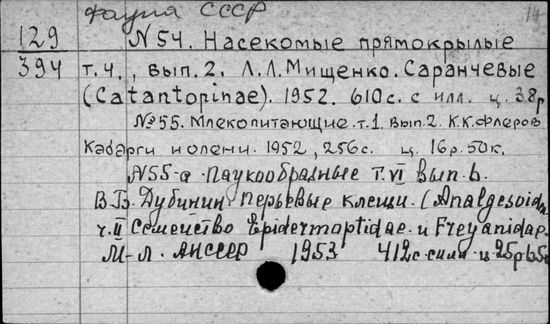 Фауна СССР 14
129 N 54. Насекомые прямокрылые
394 т. 4., вып. 2. Л.Л. Мищенко. Саранчевые
(Catantopinae). 1952. 610 с. с илл. ц. 38 р
№ 55. Млекопитающие. т. 1. вып. 2. К.К. Флеров
Кабарги и олени. 1952, 256 с. ц. 16 р. 50 к.
N 55-а. Паукообразные т. VI вып. 6.
В.Б. Дубинин. Перьевые клещи. (Analgesoidea
ч. II Семейство Epidermoptidae. и Freyanidae.
М-Л. АНСССР 1953 412 с. с илл. ц. 25 р 65